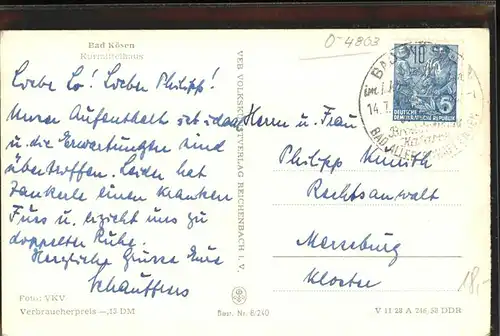 Bad Kösen
Kurmittelhaus
O-4803
Liebe Lo! Lieber Philipp!
Unser Aufenthalt ist ideal
u. die Erwartungen sind
übertroffen. Leider hat
einen kranken
Fuss u. erzieht uns zu
doppelter Ruhe.
Herzliche Grüsse Eure
Foto: VKV
Verbraucherpreis —,13 DM
VEB VOLKSKUNSTVERLAG REICHENBACH i. V.
Best. Nr. 6/240
BAD
14.7.
10
DEUTSCHE
DEMOKRATISCHE REPUBLIK
5
Herrn u. Frau
Philipp
Rechtsanwalt
Merseburg
Kloster
18,-
V 11 28 A 246, 50 DDR